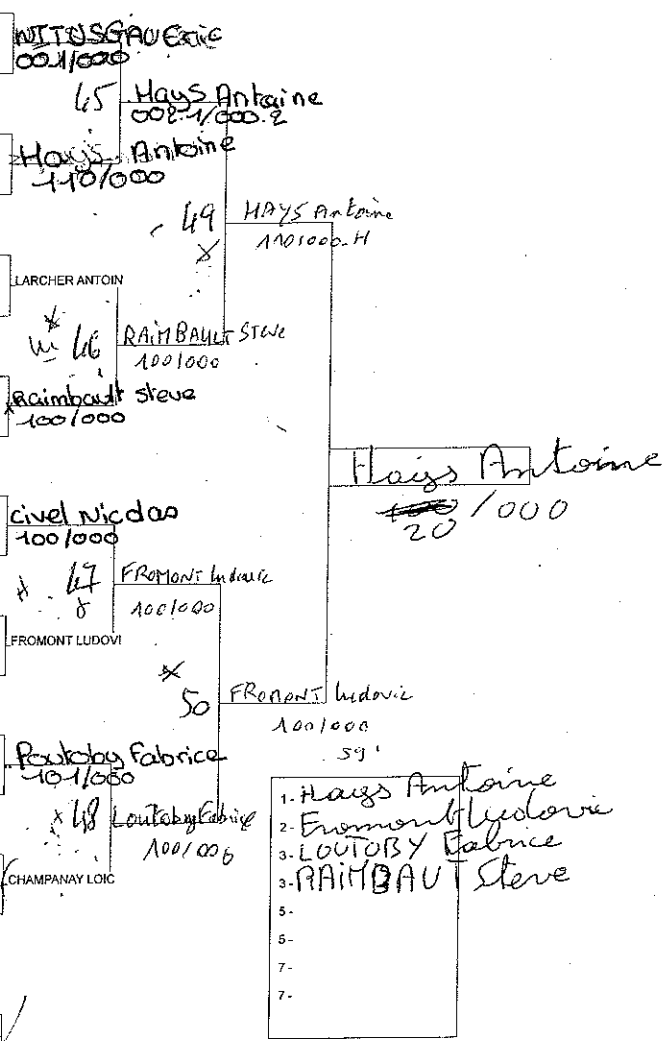 NITUSGAU Eric
001/000
45
Hays Antoine
002.1/000.2
Hays Antoine
110/000
49
HAYS Antoine
110/000-H
LARCHER ANTOIN
46
RAIMBAULT STEVE
100/000
Raimbault steve
100/000
Hays Antoine
/000
20
civel Nicolas
100/000
47
FROMONT Ludovic
100/000
FROMONT LUDOVI
50
FROMONT Ludovic
100/000
59'
Poutoby Fabrice
101/000
48
Loutoby Fabrice
100/000
CHAMPANAY LOIC
1- Hays Antoine
2- Fromont Ludovic
3- LOUTOBY Fabrice
3- RAIMBAUT Steve
5-
5-
7-
7-